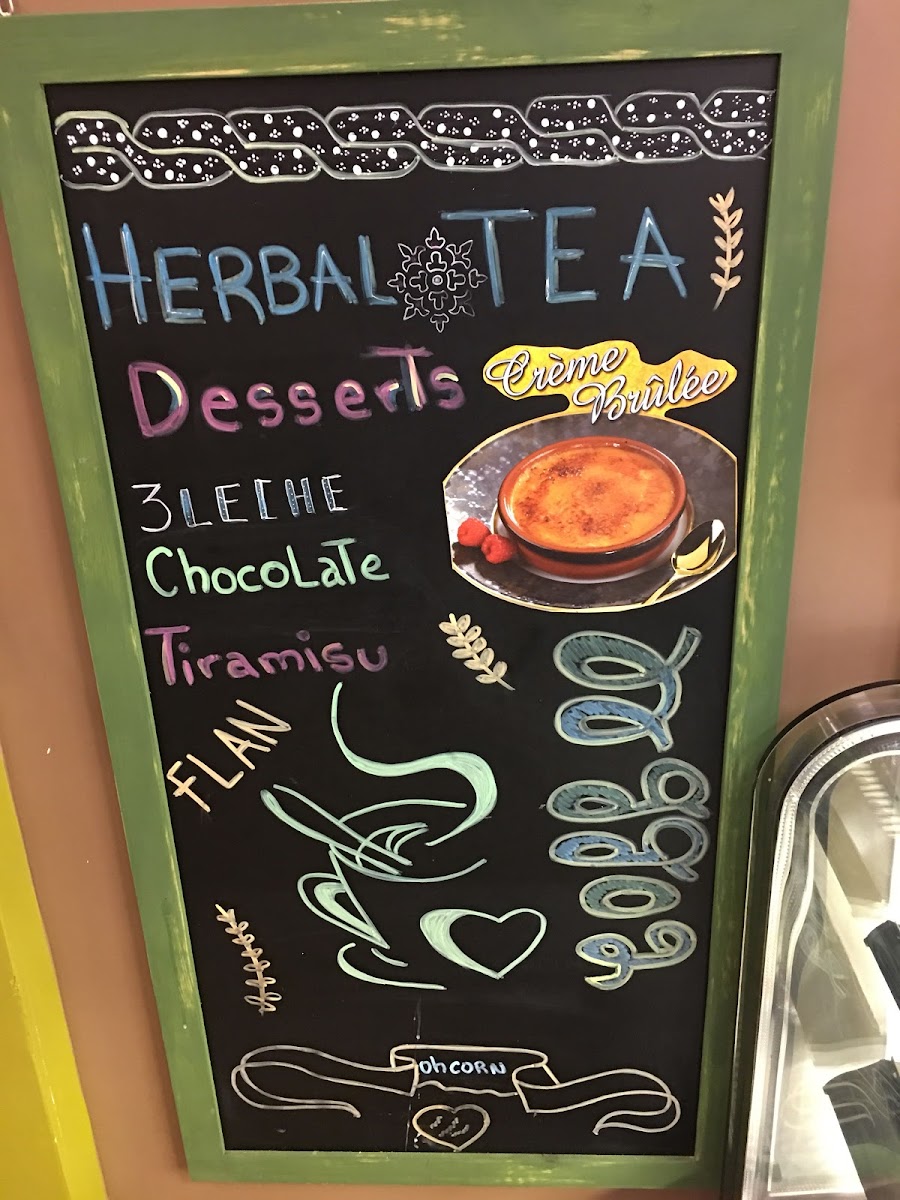 HERBAL TEA
Desserts
Crème
Brûlée
3 LECHE
Chocolate
Tiramisu
FLAN
Coffee
Oh CORN